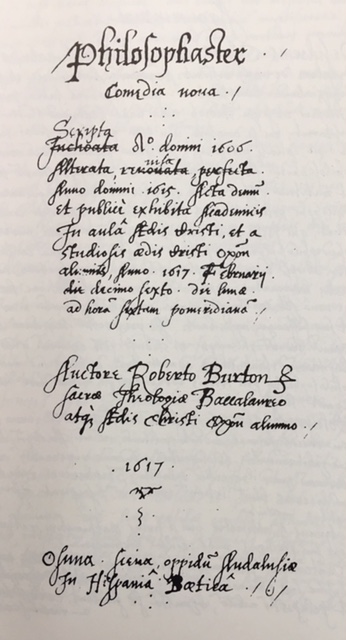 Philosophaster
Comœdia nova.
Scripta
Inchoata A⁰. domini 1606.
revisa
Alterata, renouata, perfecta.
Anno domini. 1615. Acta demū
et publicè exhibita Academicis
In aulâ Ædis Christi, et a
studiosis ædis Christi Oxoñ
alumnis, Anno. 1617. Februarij
die decimo sexto. die lunæ.
ad horā sextam pomeridianā.
Auctore Roberto Burton
sacræ Theologiæ Baccalaureo
atq; Ædis Christi Oxoñ alumno.
1617.
Osuna. scena, oppidū Andalusiæ
In Hispaniâ Bæticâ.